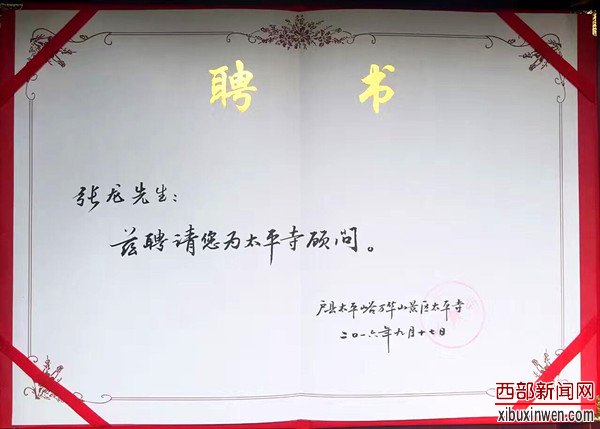 聘 书
张龙先生：
兹聘请您为太平寺顾问。
户县太平峪万华山景区太平寺
二〇一六年九月十七日
西部新闻网
xibuxinwen.com